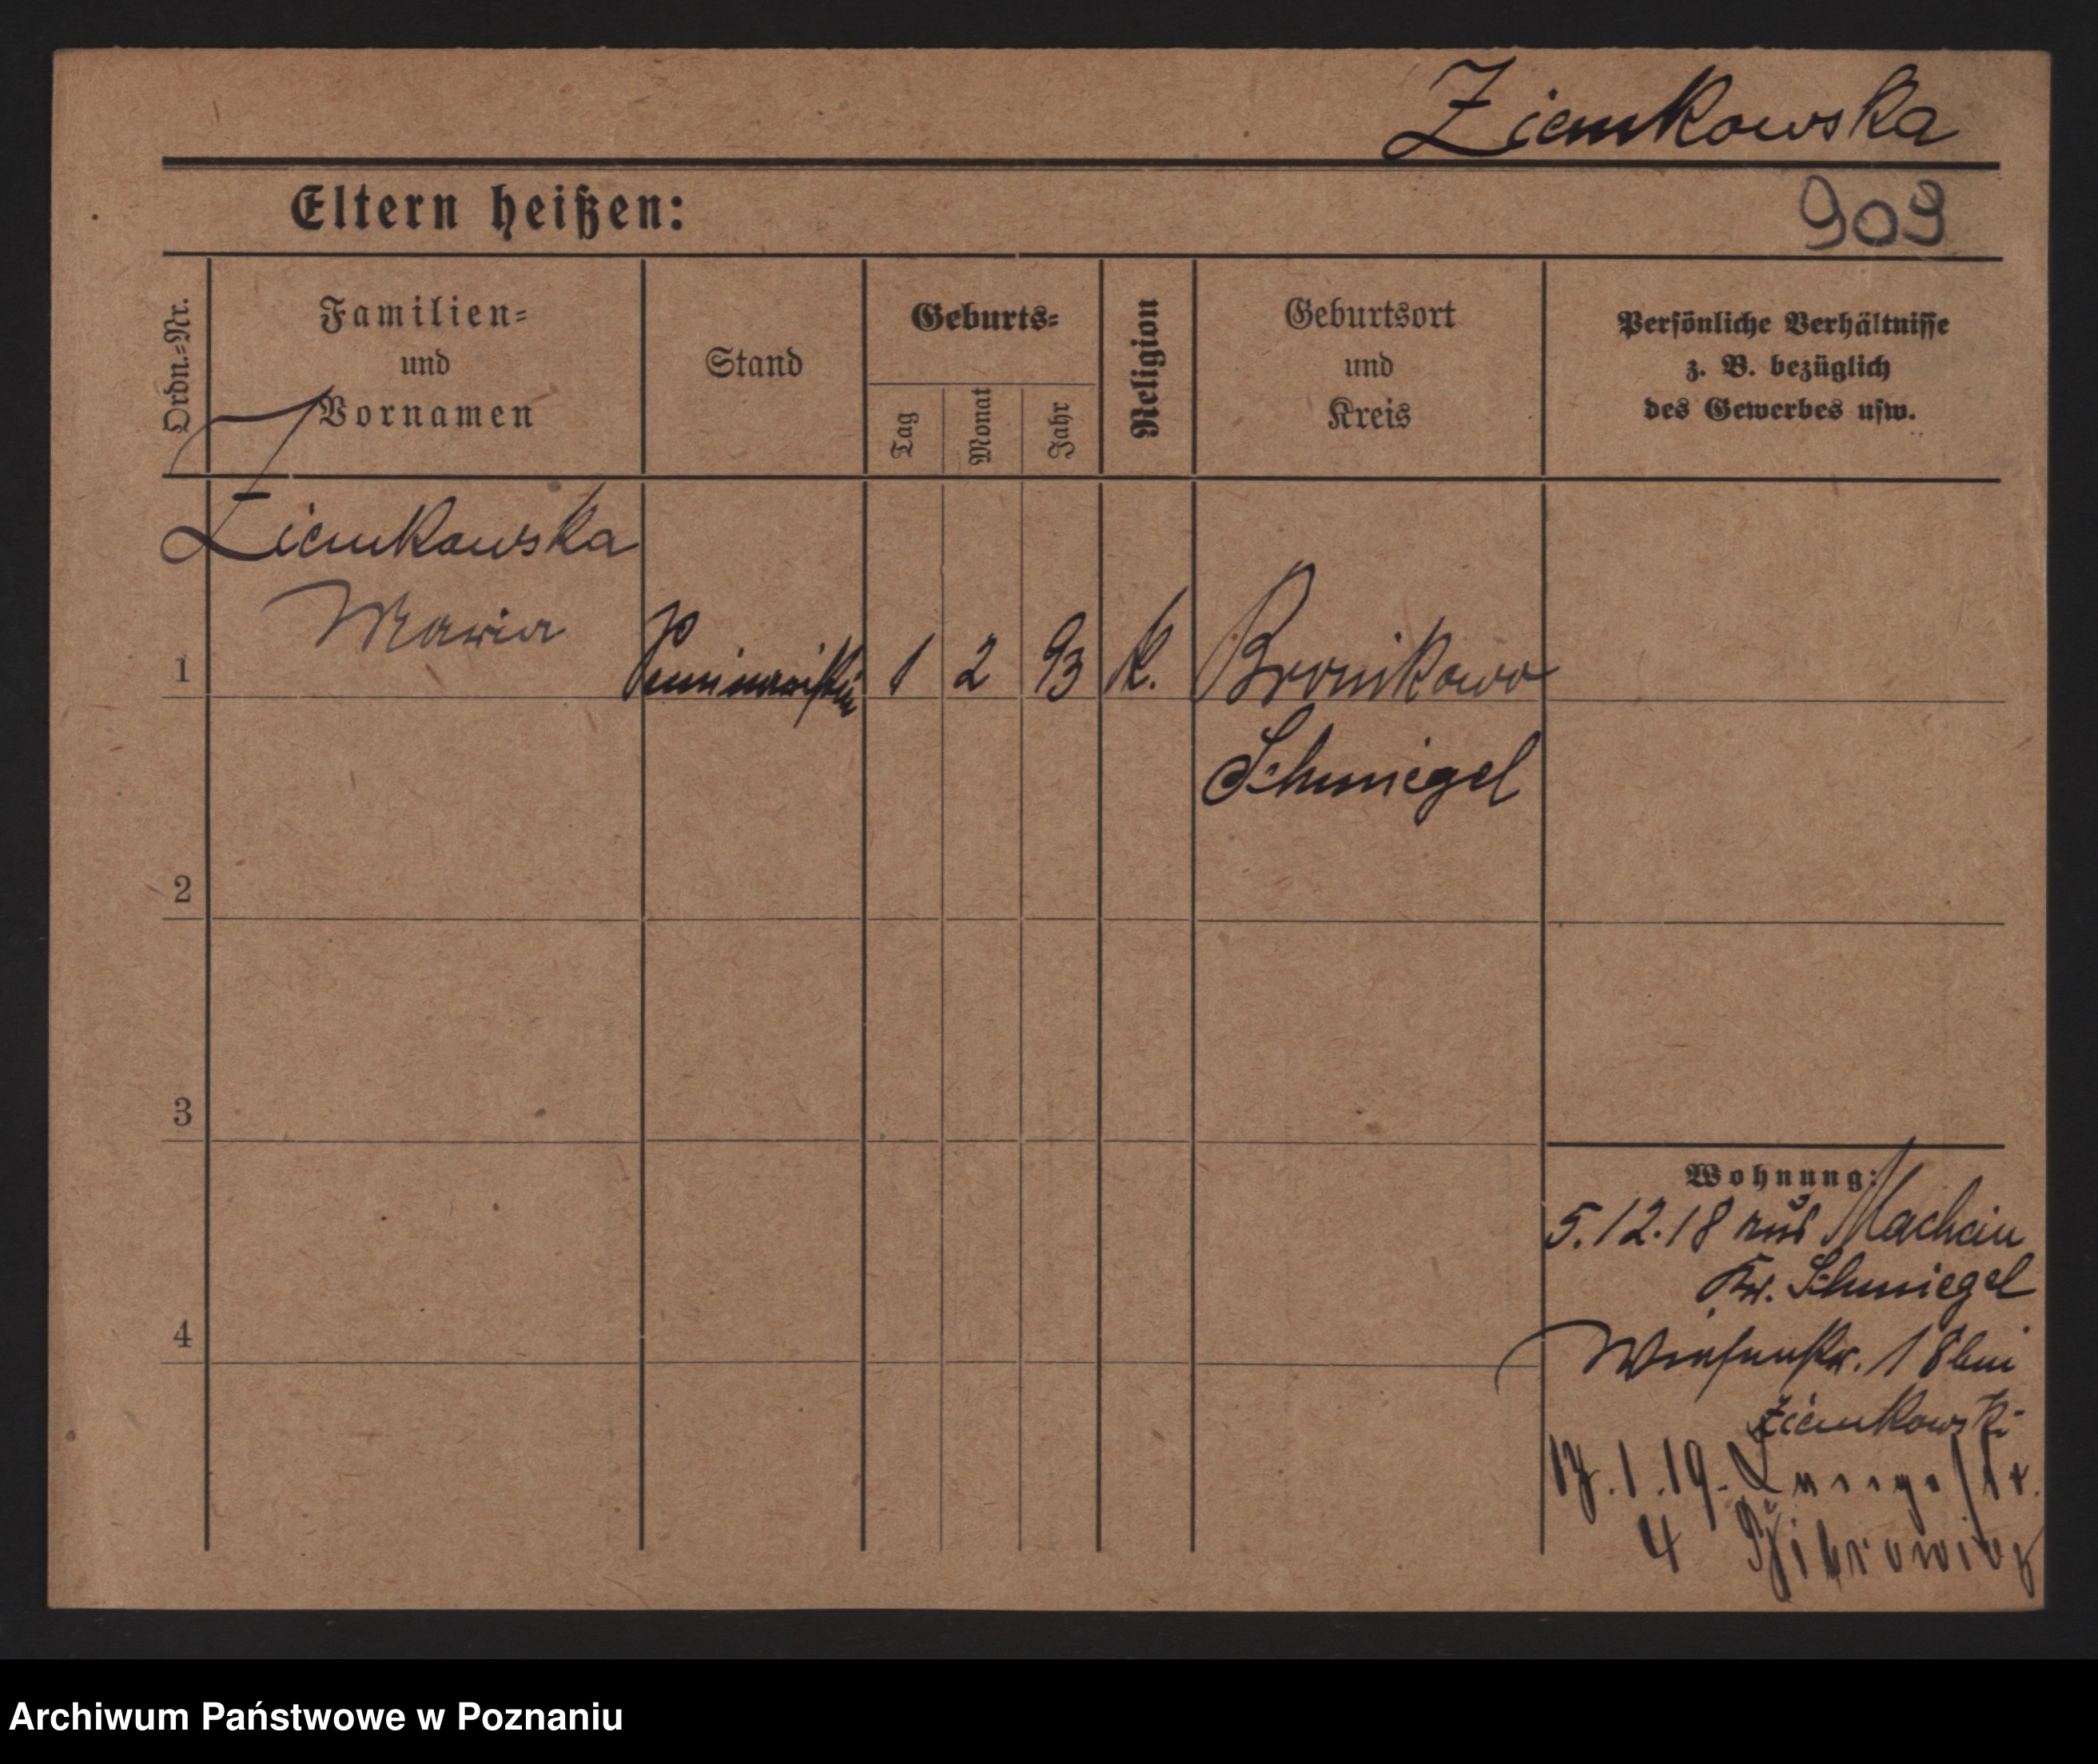 Ziemkowska
Eltern heißen:
909
Ordn.=Nr.
Familien=
und
Vornamen
Stand
Geburts=
Tag
Monat
Jahr
Religion
Geburtsort
und
Kreis
Persönliche Verhältnisse
z. B. bezüglich
des Gewerbes usw.
Ziemkowska
Maria
1
Seminaristin
1
2
93
k.
Bronikowo
Schmiegel
2
3
4
Wohnung:
5.12.18 aus Machcin
Kr. Schmiegel
Wiesenstr. 18 bei
Ziemkowski
17.1.19. Langestr.
4
Archiwum Państwowe w Poznaniu